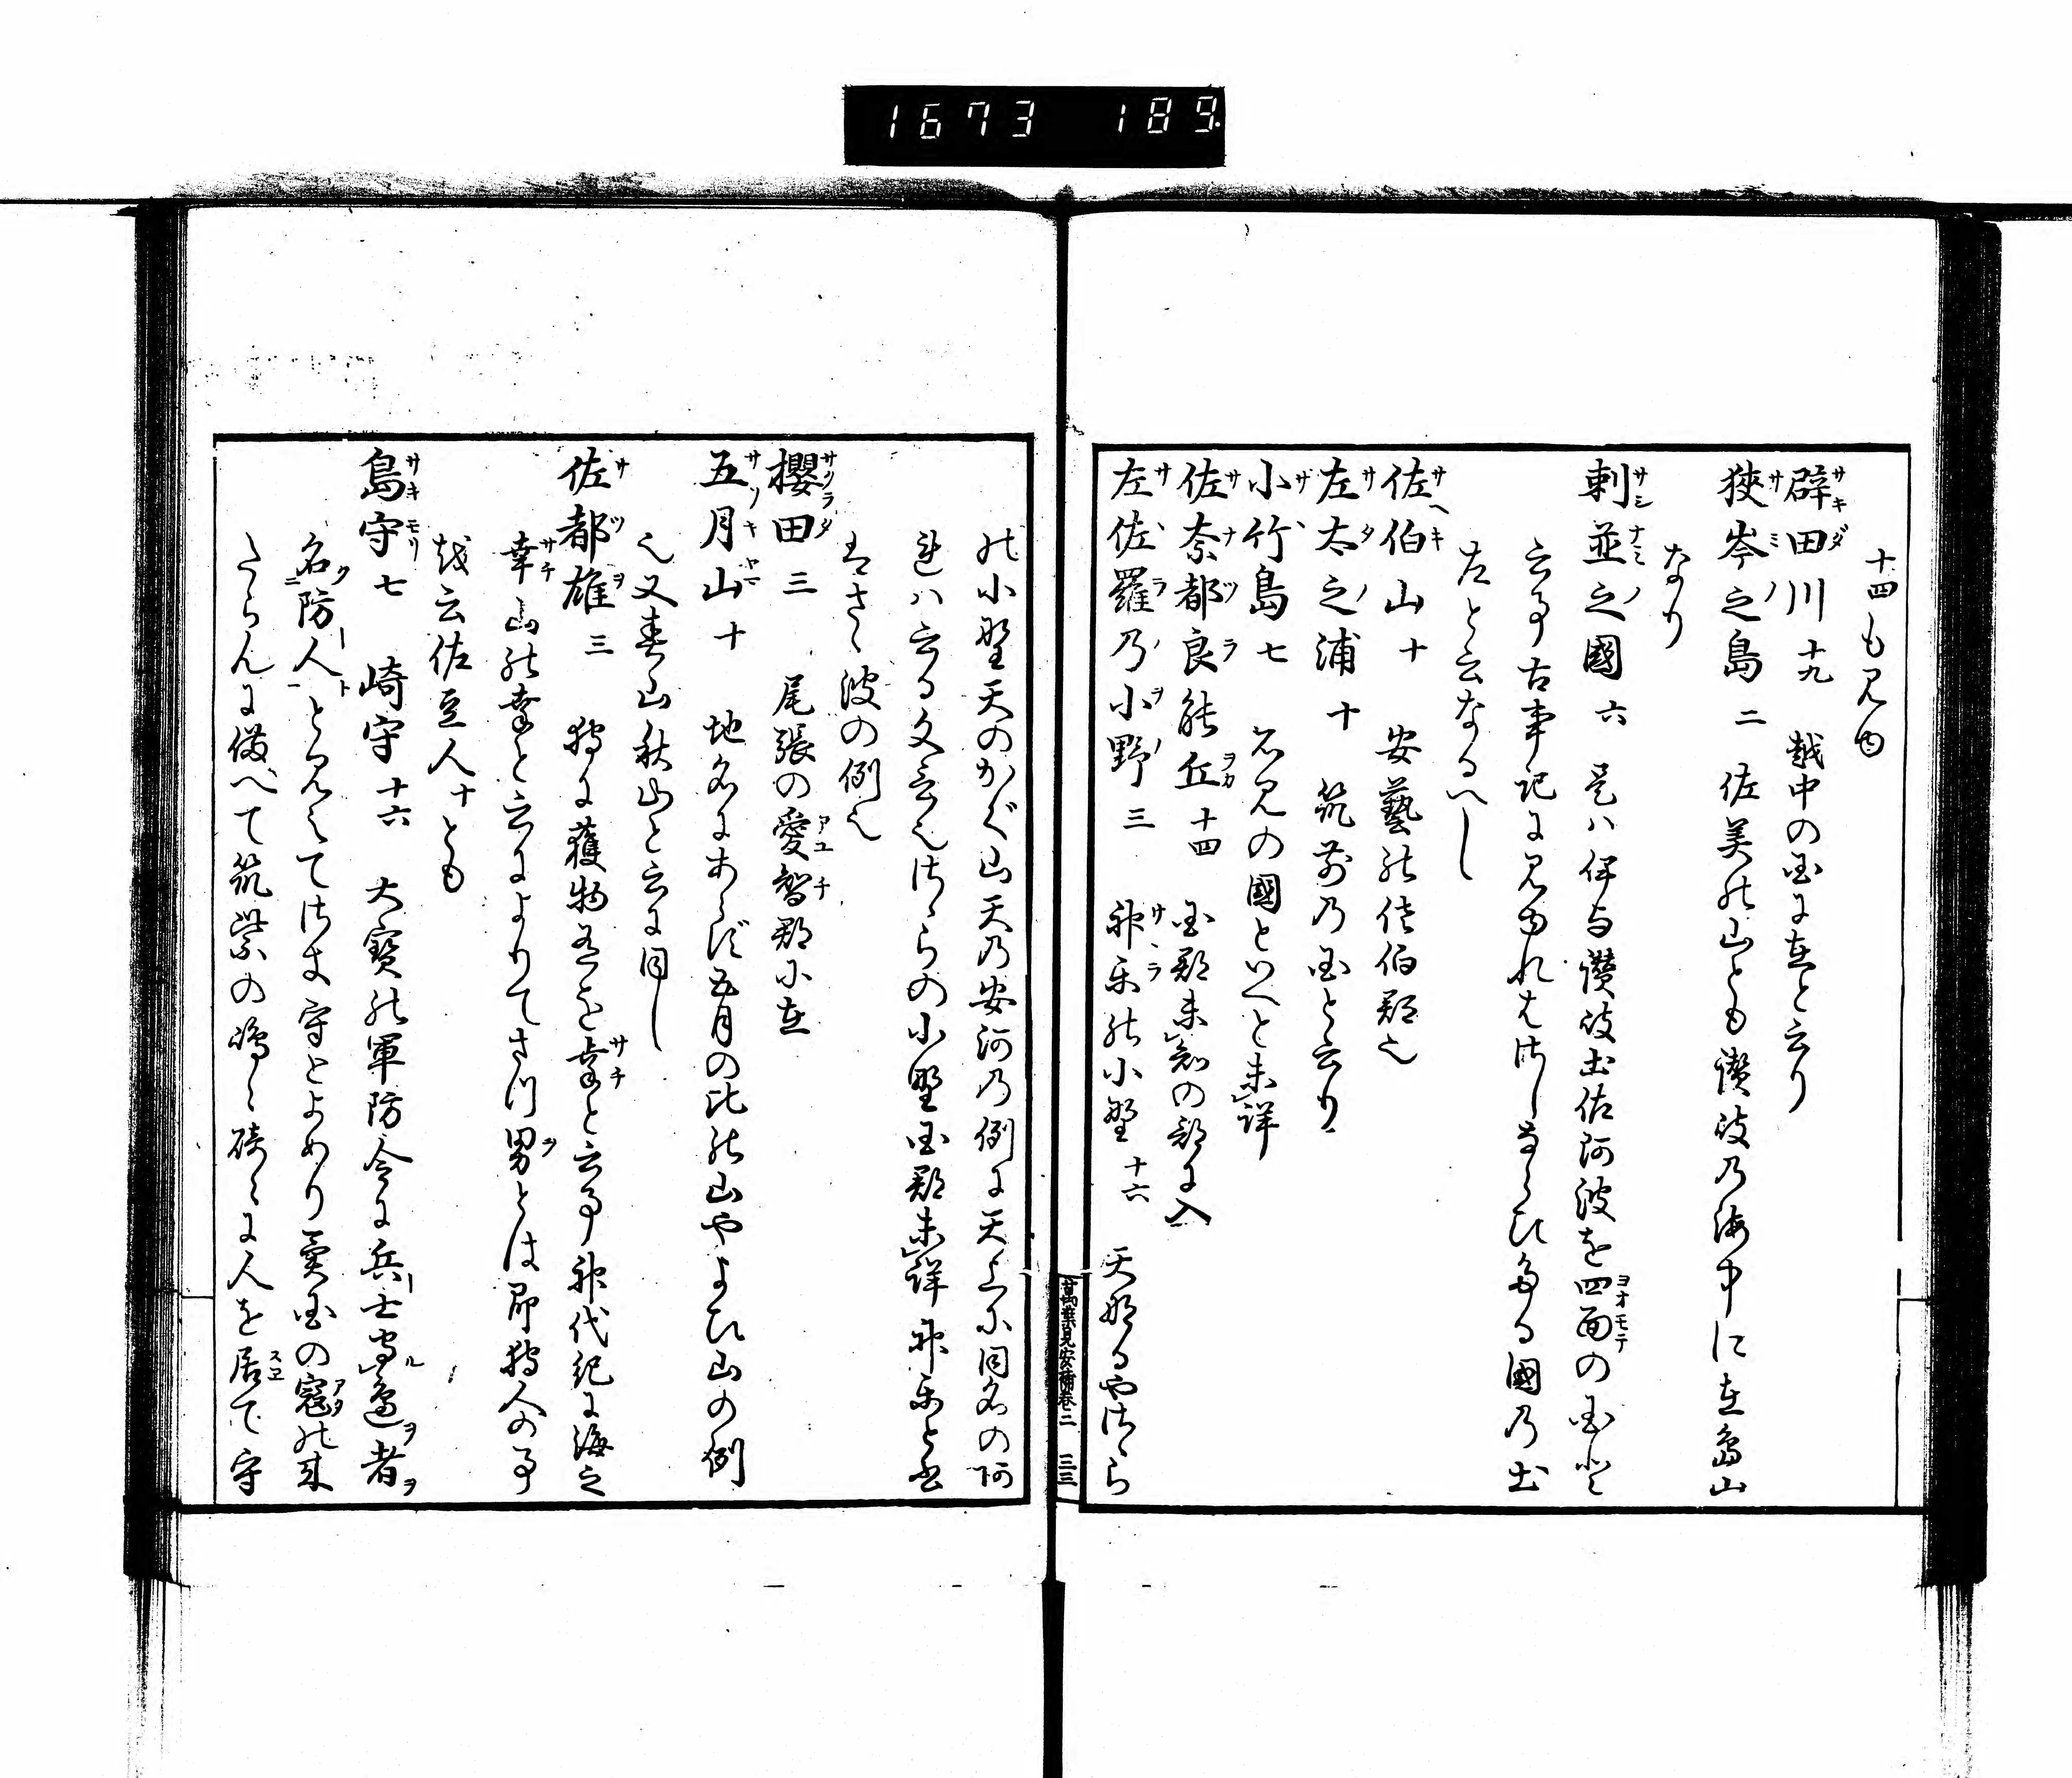 1673 189
十四も見ゆ
辟田川 十九 越中の国に在と云り
狹岑之島 二 佐美の山とも讃岐乃海中に在島山
なり
刺並之國 六 是ハ伊与讃岐土佐阿波を四面の国と
云事古事記に見ゆれはさしならひたる國乃土
左と云なるへし
佐伯山 十 安藝の佐伯郡也
左太之浦 十 筑前乃国と云り
小竹島 七 石見の國といへと未詳
佐奈都良能丘 十四 国郡未勘の部に入
左佐羅乃小野 三 神楽の小野 十六 天なるやさゝら
の小野天のかぐ山天乃安河乃例に天上に同名の
れハ云る文言也さゝらの小野国郡未詳神楽と書
はさゝ波の例也
櫻田 三 尾張の愛智郡に在
五月山 十 地名にあらず五月の比の山やよひ山の例
也又春山秋山と云に同し
佐都雄 三 狩に獲物有を幸と云事神代紀に海之
幸山の幸と云によりてさつ男とは即狩人の事
故云佐豆人 十 とも
島守 七 崎守 十六 大寶の軍防令に兵士守邊者
名防人と見えてさき守とよめり異国の寇の来
たらんに備へて筑紫の嶋々碕々に人を居て守
萬葉見安補卷三 三三